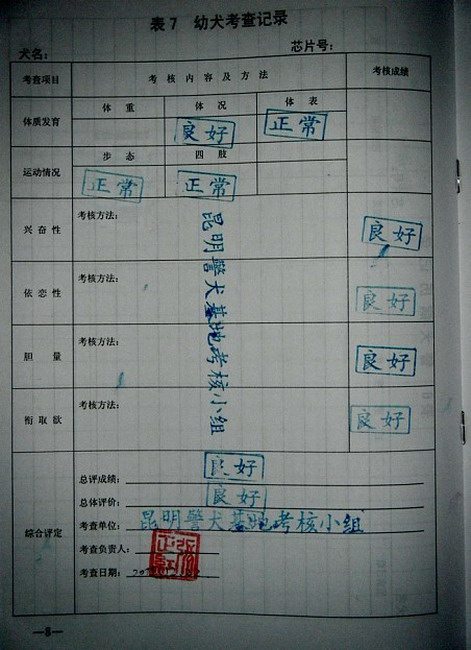 表7 幼犬考查记录
犬名： 芯片号：
考查项目 考核内容及方法 考核成绩
体质发育 体重 体况 体表
良好 正常
运动情况 步态 四肢
正常 正常
兴奋性 考核方法： 良好
昆明警犬基地考核小组
依恋性 考核方法： 良好
胆量 考核方法： 良好
衔取欲 考核方法： 良好
综合评定
总评成绩： 良好
总体评价： 良好
考查单位： 昆明警犬基地考核小组
考查负责人：
考查日期：
—8—